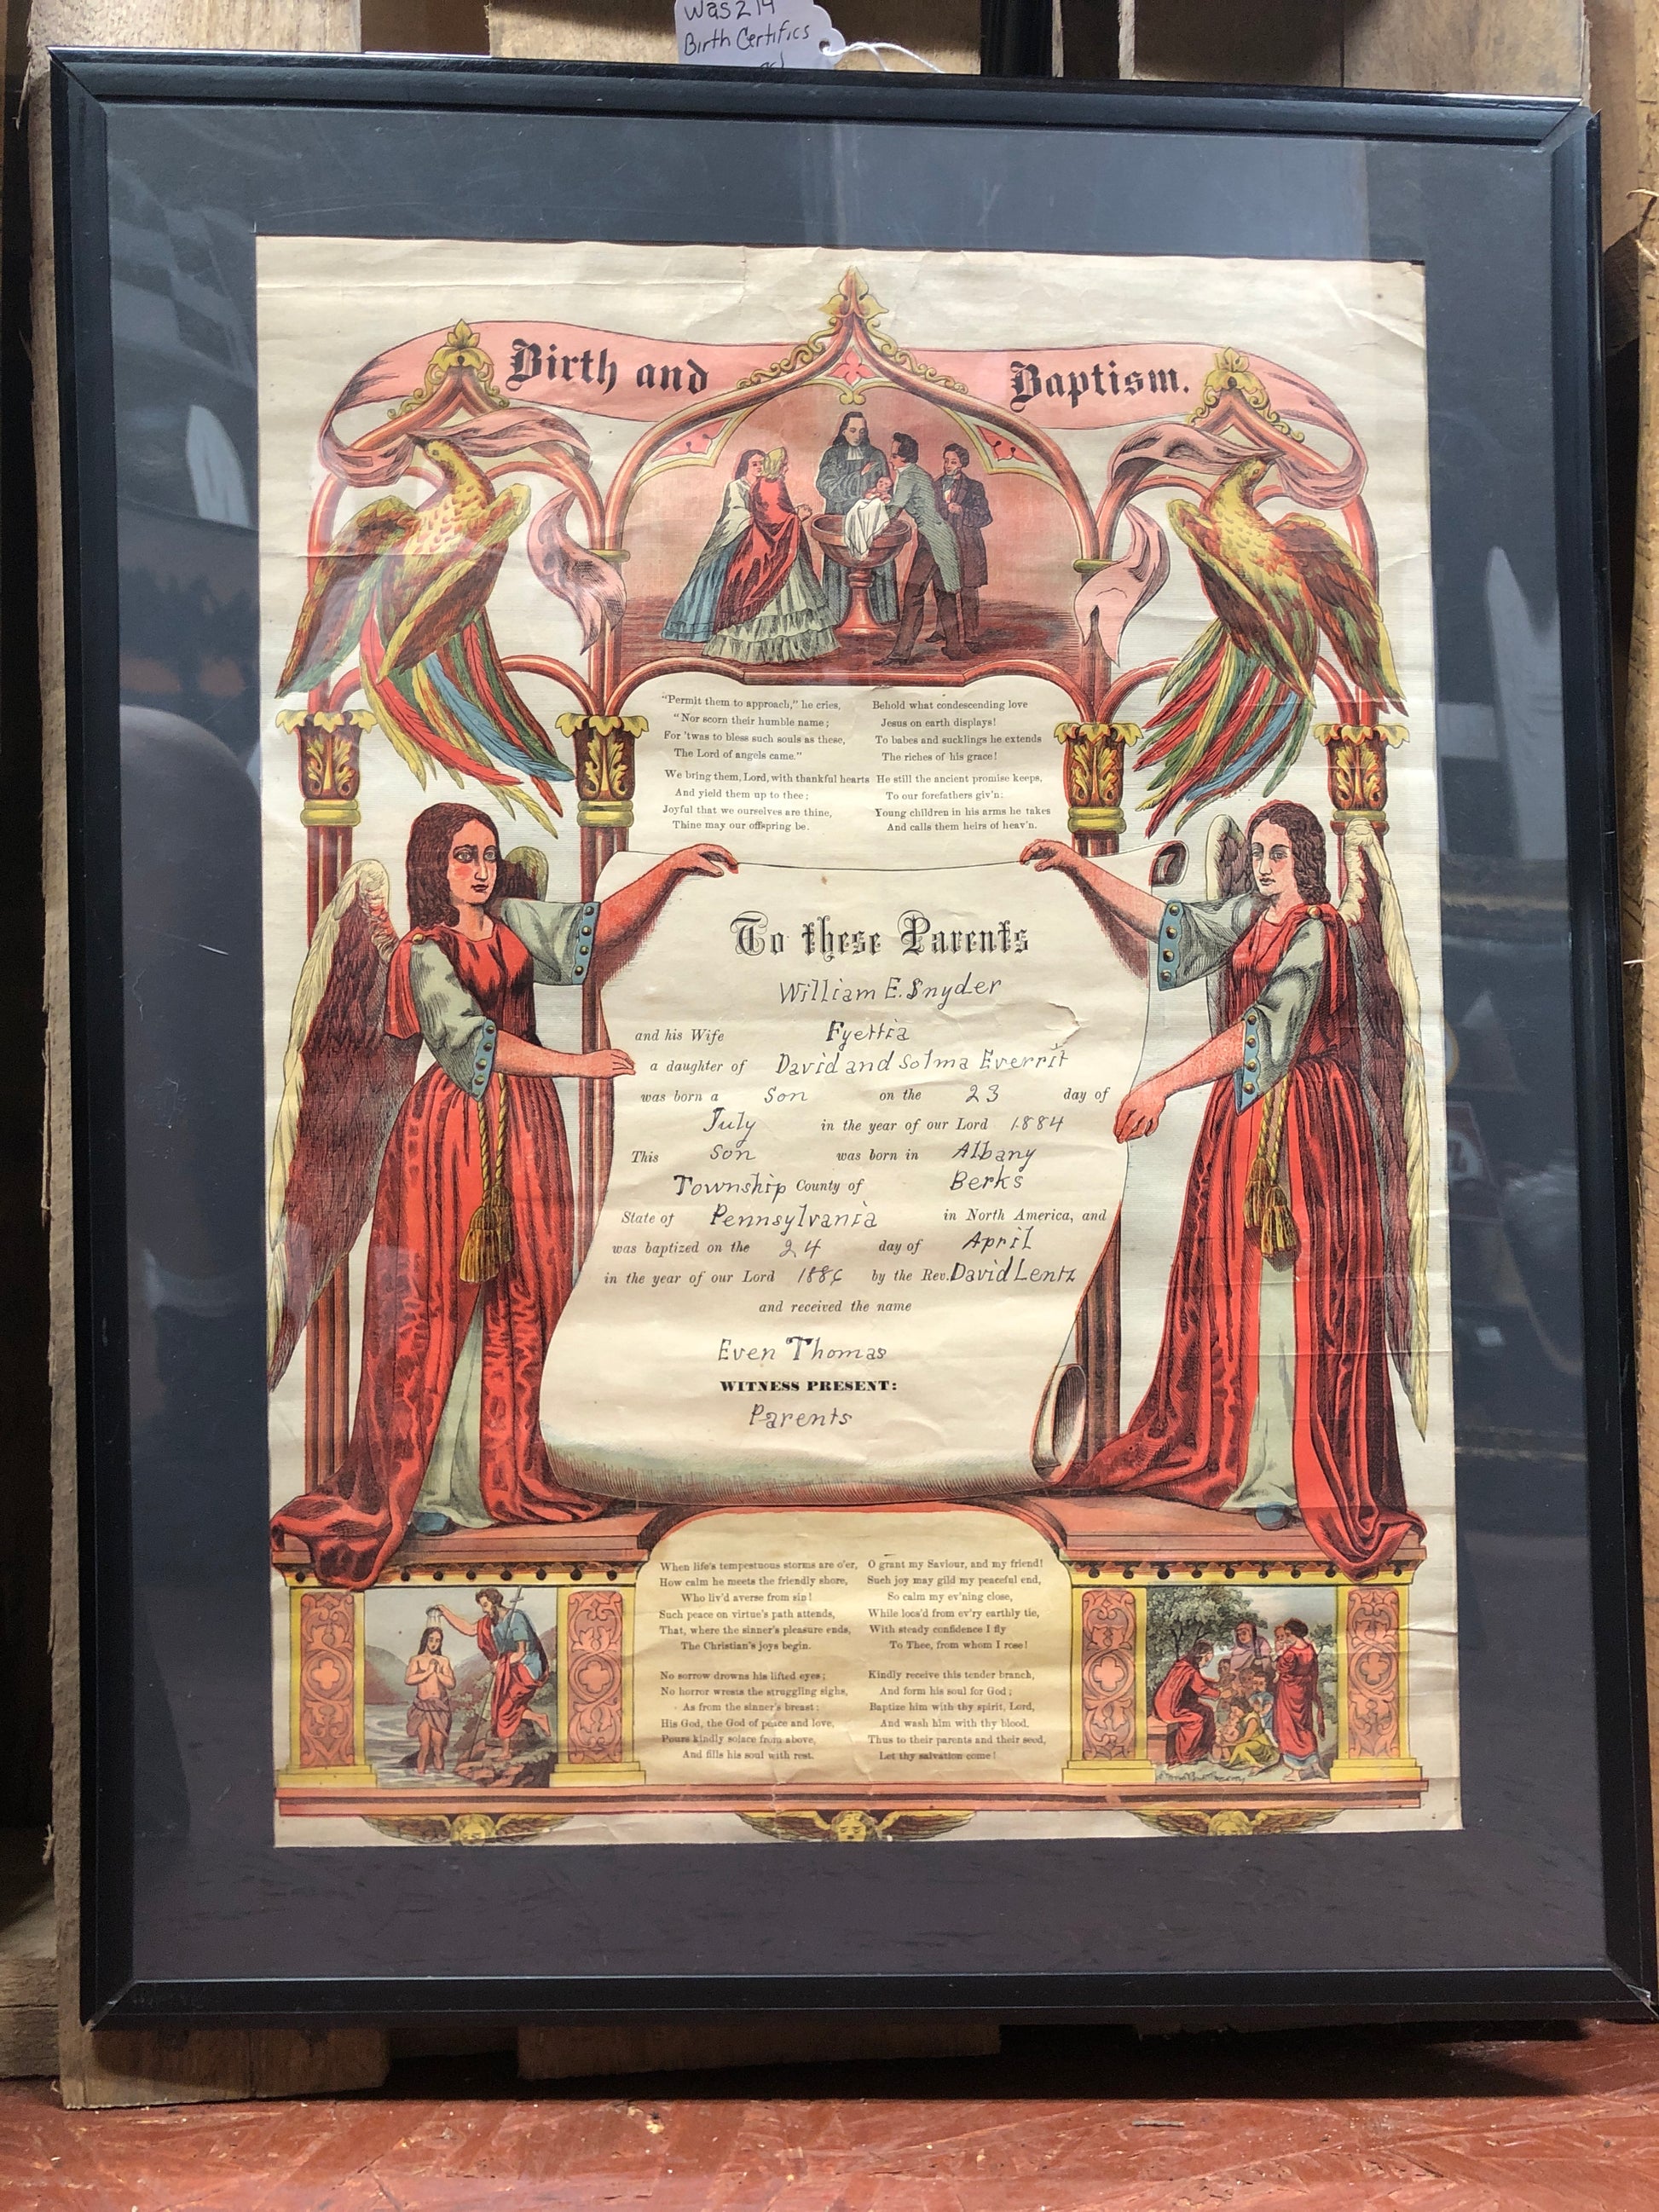 Was 214
Birth Certifics
Birth and Baptism.
"Permit them to approach," he cries,
"Nor scorn their humble name;
For 'twas to bless such souls as these,
The Lord of angels came."
We bring them, Lord, with thankful hearts
And yield them up to thee;
Joyful that we ourselves are thine,
Thine may our offspring be.
Behold what condescending love
Jesus on earth displays!
To babes and sucklings he extends
The riches of his grace!
He still the ancient promise keeps,
To our forefathers giv'n;
Young children in his arms he takes
And calls them heirs of heav'n.
To these Parents
William E. Snyder
and his Wife Fyettia
a daughter of David and Solma Everrit
was born a Son on the 23 day of
July in the year of our Lord 1884
This Son was born in Albany
Township County of Berks
State of Pennsylvania in North America, and
was baptized on the 24 day of April
in the year of our Lord 1886 by the Rev. David Lentz
and received the name
Even Thomas
WITNESS PRESENT:
Parents
When life's tempestuous storms are o'er,
How calm he meets the friendly shore,
Who liv'd averse from sin!
Such peace on virtue's path attends,
That, where the sinner's pleasure ends,
The Christian's joys begin.
No sorrow drowns his lifted eyes;
No horror wrests the struggling sighs,
As from the sinner's breast:
His God, the God of peace and love,
Pours kindly solace from above,
And fills his soul with rest.
O grant my Saviour, and my friend!
Such joy may gild my peaceful end,
So calm my ev'ning close,
While loos'd from ev'ry earthly tie,
With steady confidence I fly
To Thee, from whom I rose!
Kindly receive this tender branch,
And form his soul for God;
Baptize him with thy spirit, Lord,
And wash him with thy blood.
Thus to their parents and their seed,
Let thy salvation come!